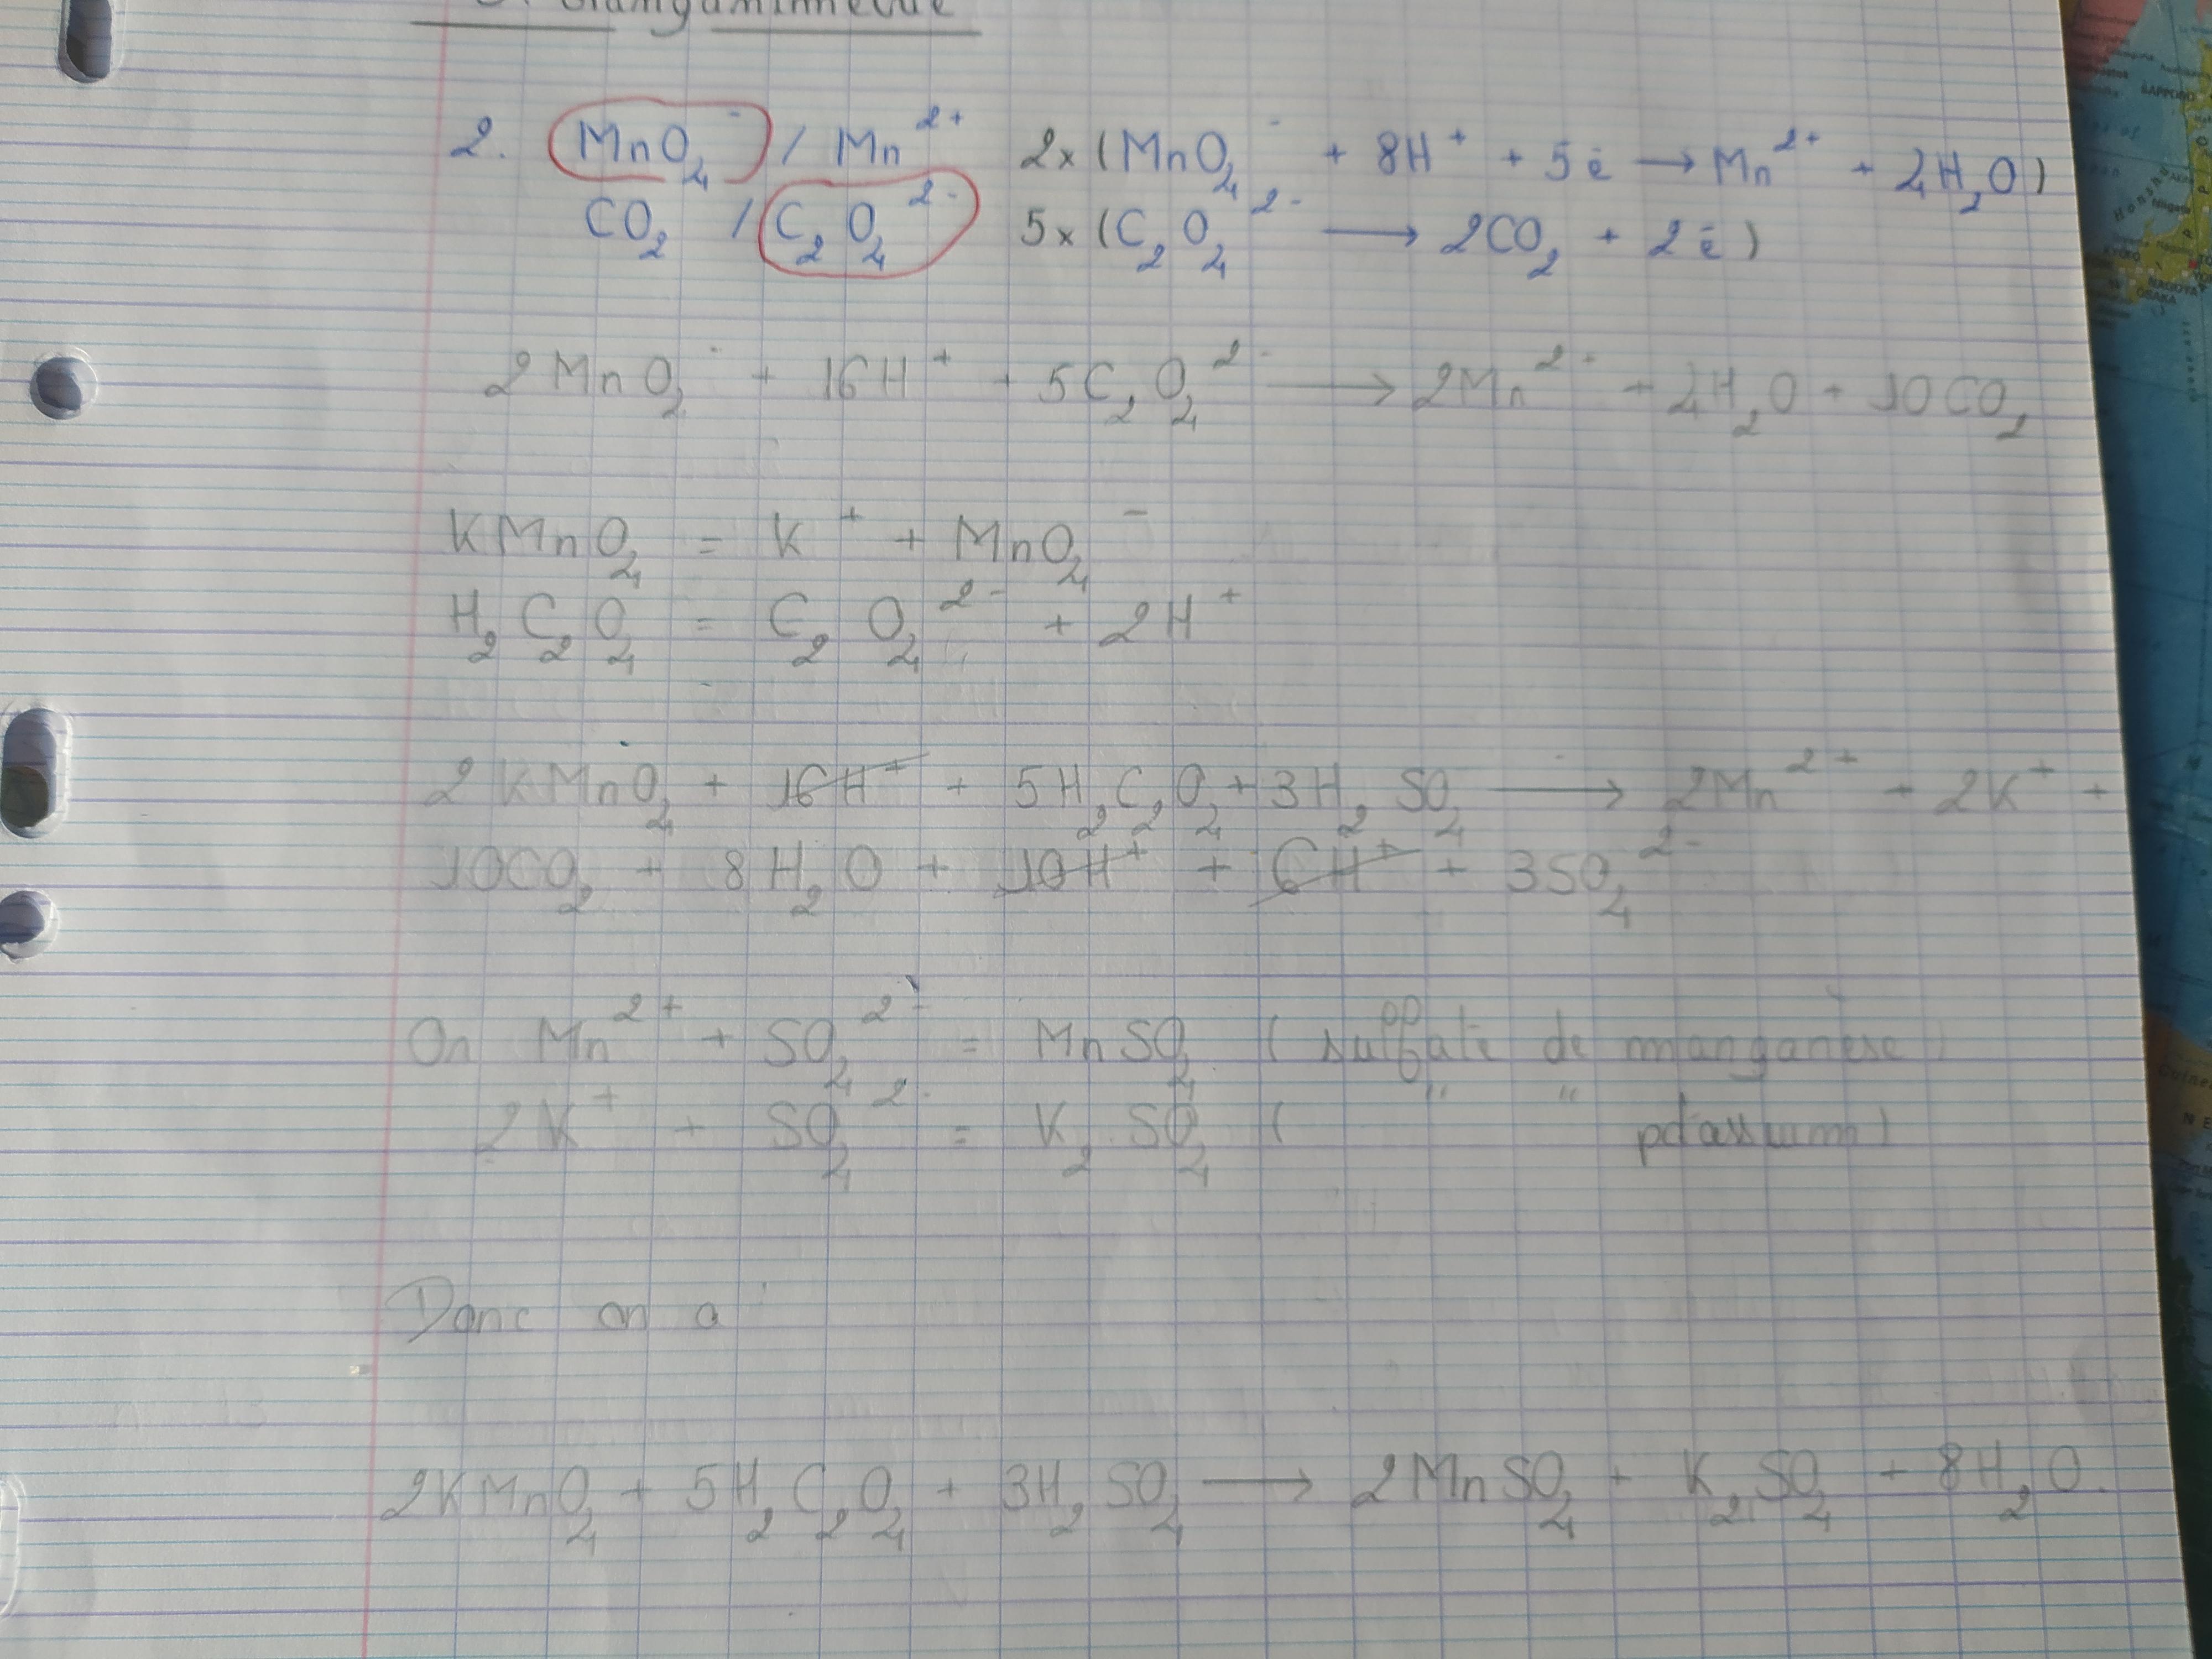 2. MnO₄⁻ / Mn²⁺ 2x (MnO₄⁻ + 8H⁺ + 5e⁻ → Mn²⁺ + 4H₂O)
CO₂ / C₂O₄²⁻ 5x (C₂O₄²⁻ → 2CO₂ + 2e⁻)
2MnO₄⁻ + 16H⁺ + 5C₂O₄²⁻ → 2Mn²⁺ + 4H₂O + 10CO₂
KMnO₄ = K⁺ + MnO₄⁻
H₂C₂O₄ = C₂O₄²⁻ + 2H⁺
2KMnO₄ + 16H⁺ + 5H₂C₂O₄ + 3H₂SO₄ → 2Mn²⁺ + 2K⁺ +
10CO₂ + 8H₂O + 10H⁺ + 6H⁺ + 3SO₄²⁻
On Mn²⁺ + SO₄²⁻ = MnSO₄ (sulfate de manganèse)
2K⁺ + SO₄²⁻ = K₂SO₄ ( " " potassium)
Donc on a
2KMnO₄ + 5H₂C₂O₄ + 3H₂SO₄ → 2MnSO₄ + K₂SO₄ + 8H₂O.